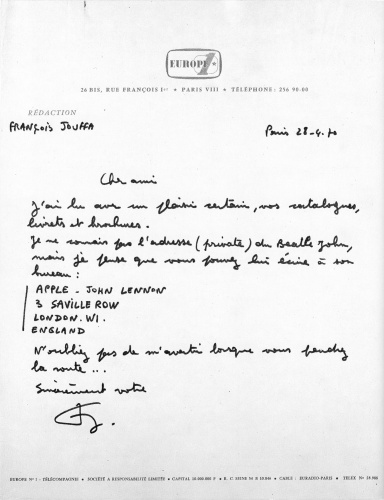 EUROPE 1
26 BIS, RUE FRANÇOIS Ier ★ PARIS VIII ★ TÉLÉPHONE: 256 90-00
RÉDACTION
FRANÇOIS JOUFFA
Paris 28-4-70
Cher ami
J'ai lu avec un plaisir certain, vos catalogues,
livrets et brochures.
Je ne connais pas l'adresse (private) du Beatle John,
mais je pense que vous pouvez lui écrire à son
bureau:
APPLE - JOHN LENNON
3 SAVILLE ROW
LONDON. W1.
ENGLAND
N'oubliez pas de m'avertir lorsque vous
la route...
Sincèrement votre
EUROPE Nº 1 - TÉLÉCOMPAGNIE ★ SOCIÉTÉ A RESPONSABILITÉ LIMITÉE ★ CAPITAL 10.000.000 F ★ R. C. SEINE 56 B ★ CABLE: EURADIO-PARIS ★ TELEX Nº